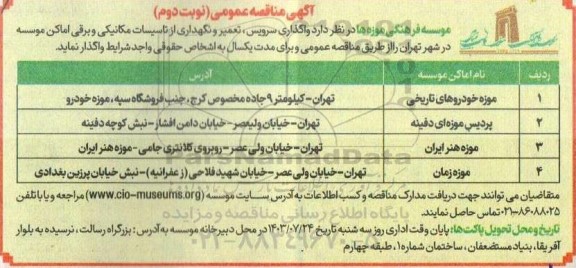 آگهی مناقصه عمومی (نوبت دوم)
موسسه فرهنگی موزه‌ها در نظر دارد واگذاری سرویس، تعمیر و نگهداری از تاسیسات مکانیکی و برقی اماکن موسسه
در شهر تهران را از طریق مناقصه عمومی و برای مدت یکسال به اشخاص حقوقی واجد شرایط واگذار نماید.
ردیف نام اماکن موسسه آدرس
۱ موزه خودروهای تاریخی تهران - کیلومتر ۹ جاده مخصوص کرج، جنب فروشگاه سپه، موزه خودرو
۲ پردیس موزه‌ای دفینه تهران - خیابان ولیعصر - خیابان دامن افشار - نبش کوچه دفینه
۳ موزه هنر ایران تهران - خیابان ولی عصر - روبروی کلانتری جامی - موزه هنر ایران
۴ موزه زمان تهران - خیابان ولی عصر - خیابان شهید فلاحی (زعفرانیه) - نبش خیابان پرزین بغدادی
متقاضیان می توانند جهت دریافت مدارک مناقصه و کسب اطلاعات به آدرس سایت موسسه (www.cio-museums.org) مراجعه و یا با تلفن
۰۲۱-۸۶۰۸۸۰۲۵ تماس حاصل نمایند.
تاریخ و محل تحویل پاکت‌ها: پایان وقت اداری روز سه شنبه تاریخ ۱۴۰۳/۰۷/۲۴ در محل دبیرخانه موسسه به آدرس: بزرگراه رسالت، نرسیده به بلوار
آفریقا، بنیاد مستضعفان، ساختمان شماره ۱، طبقه چهارم
ParsNamadData
پایگاه اطلاع رسانی مناقصه و مزایده